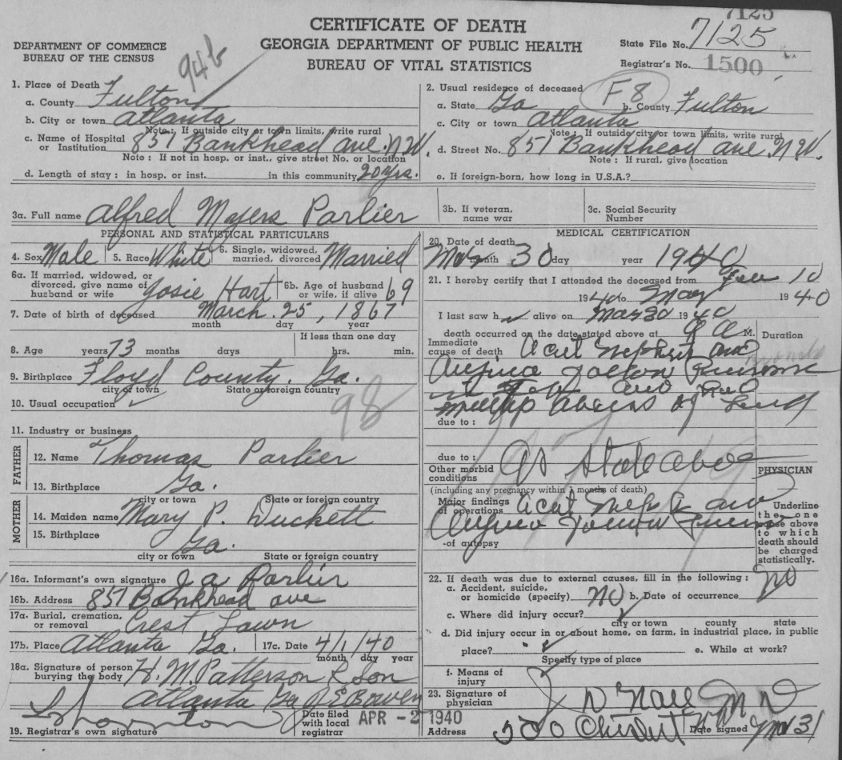 7125
CERTIFICATE OF DEATH
DEPARTMENT OF COMMERCE
BUREAU OF THE CENSUS
94b
GEORGIA DEPARTMENT OF PUBLIC HEALTH
BUREAU OF VITAL STATISTICS
State File No. 7125
Registrar's No. 1500
1. Place of Death
a. County Fulton
b. City or town Atlanta
Note: If outside city or town limits, write rural
c. Name of Hospital or Institution 851 Bankhead ave. N.W.
Note: If not in hosp. or inst., give street No. or location
d. Length of stay: in hosp. or inst. in this community 20 yrs.
2. Usual residence of deceased F8
a. State Ga b. County Fulton
c. City or town Atlanta
Note: If outside city or town limits, write rural
d. Street No. 851 Bankhead ave. N.W.
Note: If rural, give location
e. If foreign-born, how long in U.S.A.?
3a. Full name Alfred Mayers Parlier
3b. If veteran, name war
3c. Social Security Number
PERSONAL AND STATISTICAL PARTICULARS
4. Sex Male 5. Race White 6. Single, widowed, married, divorced Married
6a. If married, widowed, or divorced, give name of husband or wife Josie Hart
6b. Age of husband or wife, if alive 69
7. Date of birth of deceased March 25, 1867
month day year
8. Age years 73 months days
If less than one day
hrs. min.
9. Birthplace Floyd County, Ga.
city or town State or foreign country
10. Usual occupation
98
11. Industry or business
FATHER
12. Name Thomas Parlier
13. Birthplace Ga.
city or town State or foreign country
MOTHER
14. Maiden name Mary P. Duckett
15. Birthplace Ga.
city or town State or foreign country
16a. Informant's own signature J. A. Parlier
16b. Address 851 Bankhead ave
17a. Burial, cremation, or removal Crest Lawn
17b. Place Atlanta Ga. 17c. Date 4/1/40
month day year
18a. Signature of person burying the body H. M. Patterson & Son
Atlanta Ga
Bowen
19. Registrar's own signature
Date filed with local registrar APR - 2 1940
MEDICAL CERTIFICATION
20. Date of death
month 30 day year 1940
21. I hereby certify that I attended the deceased from Feb 10
1940 to 1940
I last saw h alive on Mar 30 1940
death occurred on the date stated above at M.
Duration
Immediate cause of death Acut
due to:
due to:
Other morbid conditions As state above
(including any pregnancy within 3 months of death)
PHYSICIAN
Major findings of operations Acut
-of autopsy
Underline the one cause above to which death should be charged statistically.
22. If death was due to external causes, fill in the following:
a. Accident, suicide, or homicide (specify) No b. Date of occurrence No
c. Where did injury occur?
city or town county state
d. Did injury occur in or about home, on farm, in industrial place, in public
place? e. While at work?
Specify type of place
f. Means of injury
23. Signature of physician M D
Address Date signed Mar 31